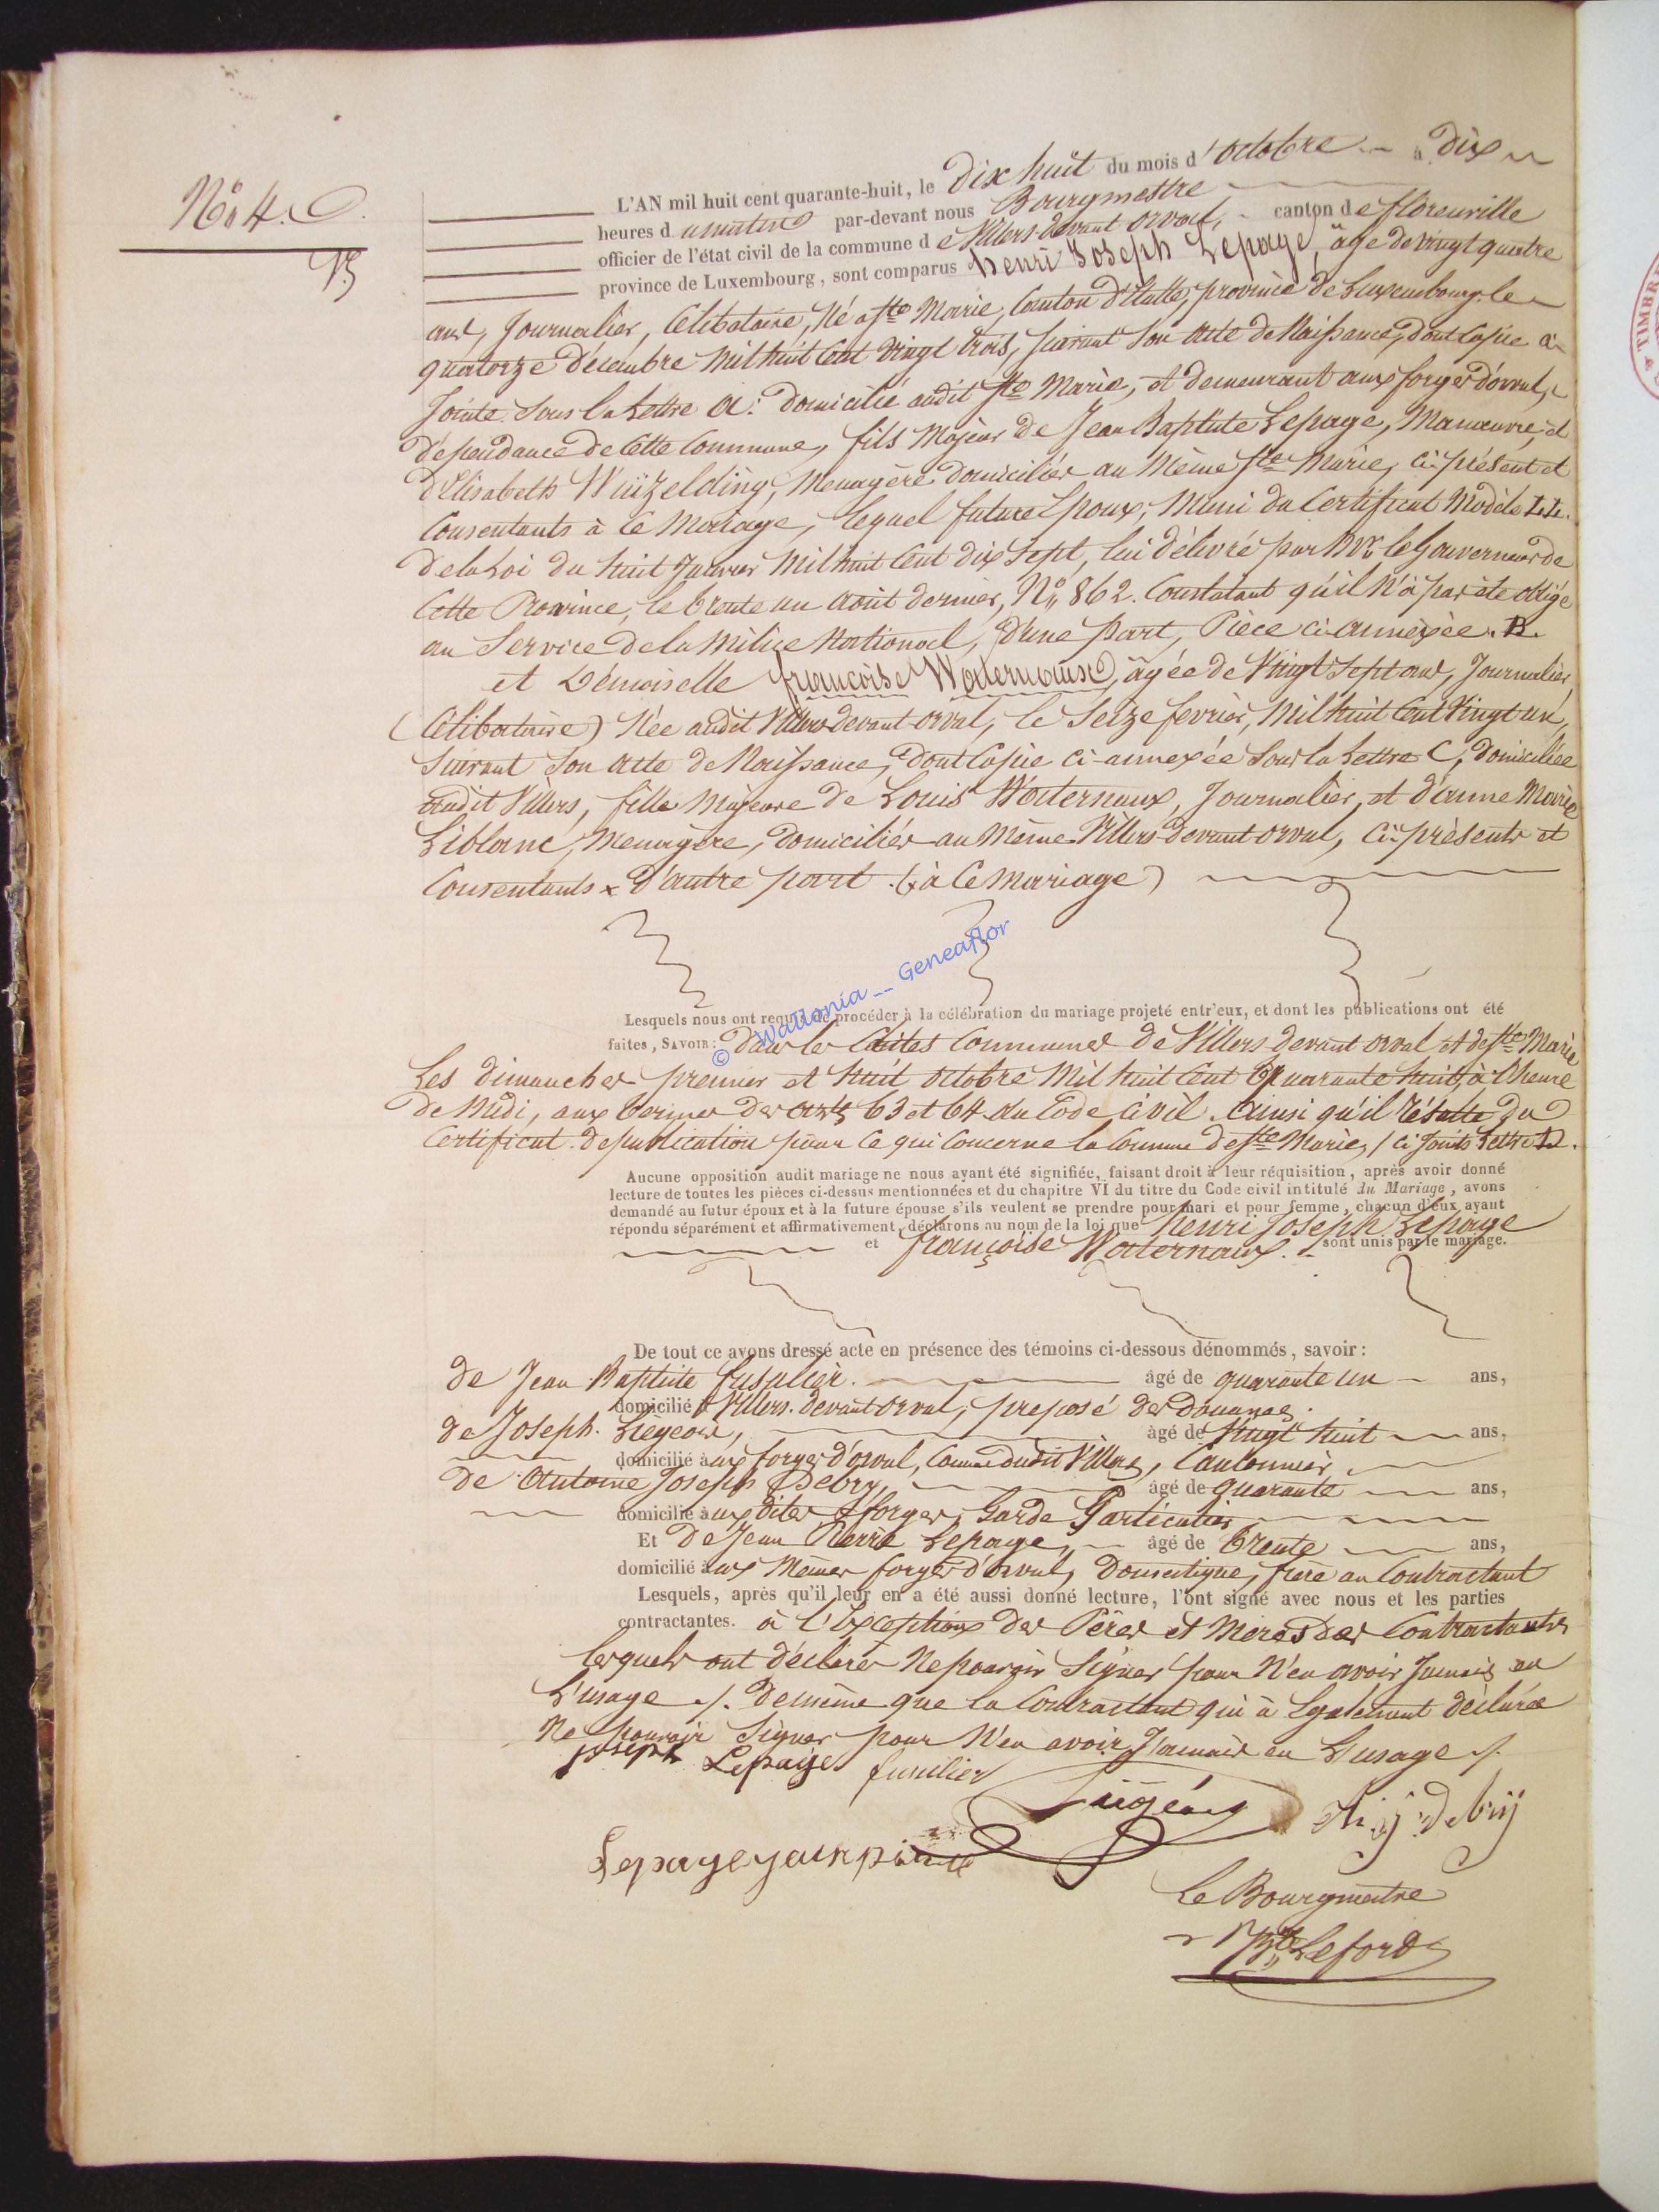 N° 4.
L'AN mil huit cent quarante-huit, le Dix huit du mois d'octobre à Dix
heures du matin par-devant nous Bourgmestre
officier de l'état civil de la commune de Villers devant orval, canton de florenville
province de Luxembourg, sont comparus henri Joseph Lepage, âgé de vingt quatre
ans, Journalier, Célibataire, Né à Ste Marie, Canton d'Etalle, province de Luxembourg, le
quatorze décembre Mil huit Cent Vingt trois, suivant son acte de Naissance, dont Copie ci-
Jointe sous la lettre A: Domicilié audit Ste Marie, et demeurant aux forges d'orval,
dépendance de Cette Commune, fils Majeur de Jean Baptiste Lepage, Manœuvre, et
d'Elisabeth Wüzelding, Menagère Domiciliés au Même Ste Marie, ci-présent et
Consentants à Ce Mariage, lequel futur Epoux, Muni du Certificat Modèle LL.
De la Loi du huit Janvier Mil huit Cent dix Sept, lui délivré par Mr le Gouverneur de
Cette Province, le trente un Août dernier, N° 862. Constatant qu'il N'a pas été obligé
au Service de la Milice National, d'une part, Pièce ci-annexée. B.
et Démoiselle françoise Waternaux, âgée de Vingt Sept ans, Journalier,
(Célibataire) Née audit Villers devant orval, le Seize fevrier, Mil huit Cent Vingt un,
Suivant Son acte de Naissance, dont Copie ci-annexée Sous la Lettre C, domiciliée
audit Villers, fille Majeure de Louis Waternaux, Journalier, et d'anne Marie
Liblanc, Menagère, domiciliés au Même Villers devant orval, ci-présents et
Consentants x d'autre part. (x à Ce Mariage)
© Wallonia -- Geneaflor
Lesquels nous ont requis de procéder à la célébration du mariage projeté entr'eux, et dont les publications ont été
faites, SAVOIR: Dans les dites Communes de Villers devant orval et de Ste Marie
Les dimanches premier et huit octobre Mil huit Cent Quarante huit, à l'heure
de Midi, aux termes des arts 63 et 64 du Code Civil. Ainsi qu'il résulte du
Certificat de publication pour Ce qui Concerne la Commune de Ste Marie, / Ci Joints Lettre D.
Aucune opposition audit mariage ne nous ayant été signifiée, faisant droit à leur réquisition, après avoir donné
lecture de toutes les pièces ci-dessus mentionnées et du chapitre VI du titre du Code civil intitulé du Mariage, avons
demandé au futur époux et à la future épouse s'ils veulent se prendre pour mari et pour femme, chacun d'eux ayant
répondu séparément et affirmativement, déclarons au nom de la loi que henri Joseph Lepage
et françoise Waternaux. sont unis par le mariage.
De tout ce avons dressé acte en présence des témoins ci-dessous dénommés, savoir:
de Jean Baptiste fusulier. âgé de quarante un ans,
domicilié à Villers devant orval, preposé des Douanes.
de Joseph Liégeois, âgé de Vingt huit ans,
domicilié aux forges d'orval, Comune dudit Villers, Cantonnier
de Antoine Joseph Debry, âgé de quarante ans,
domicilié aux dites forges, Garde Particulier
Et de Jean Pierre Lepage, âgé de trente ans,
domicilié aux Mêmes forges d'orval, Domestique, frère au Contractant
Lesquels, après qu'il leur en a été aussi donné lecture, l'ont signé avec nous et les parties
contractantes. à l'Exception des Pères et Meres des Contractants
lesquels ont déclarés Ne pouvoir Signer pour N'en avoir Jamais eu
L'usage ./. de même que la Contractant qui à Egalement déclarée
Ne pouvoir Signer pour N'en avoir Jamais eu L'usage ./.
joseph Lepage fusilier
Liégeois
Debrÿ
Lepage yean pierre
Le Bourgmestre
Leford